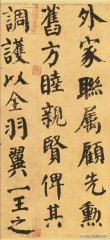 外家聯屬顧先勳
舊方睦親賢俾其
調護以全羽翼一王之